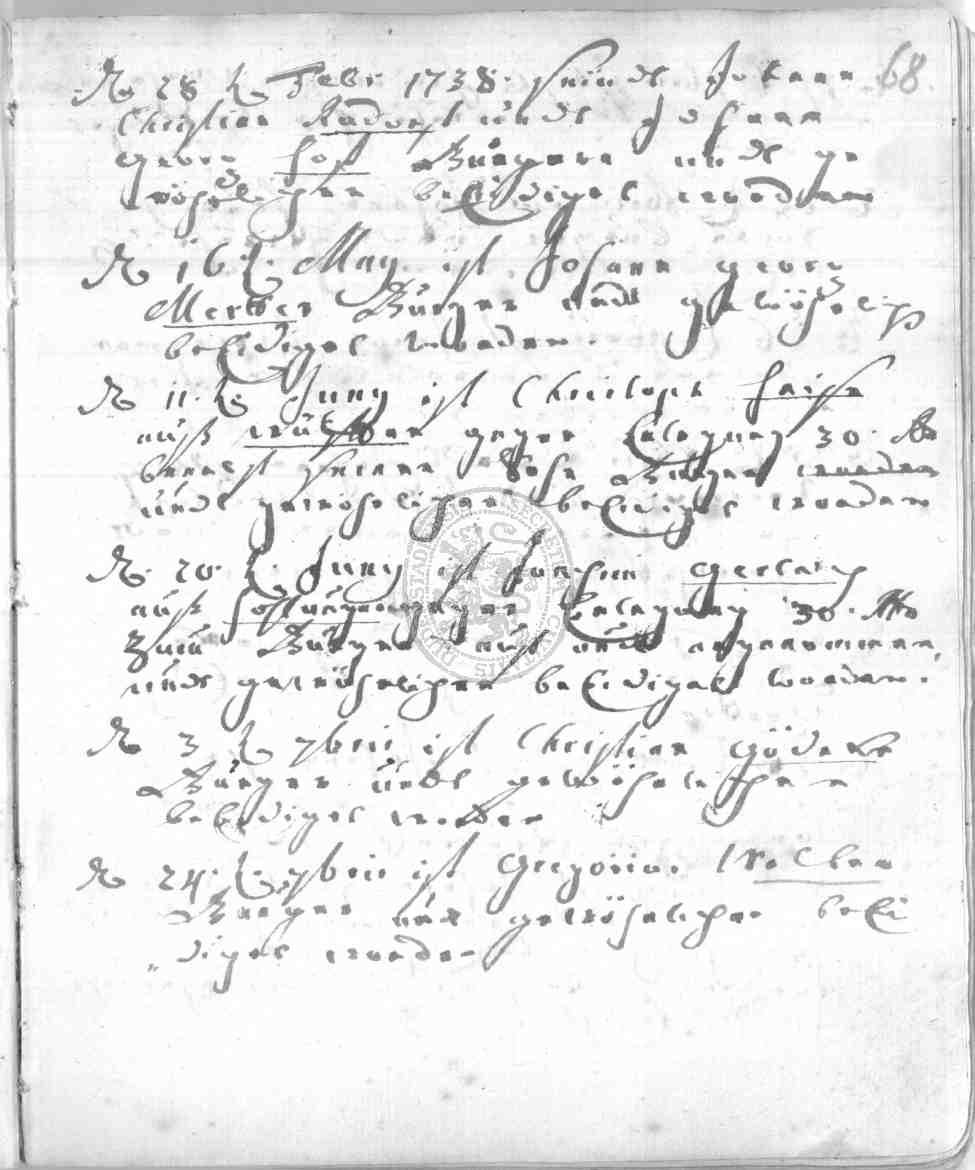 68.
D. 28 t. Febr. 1738. seindt Johann
Christian Rudorf undt Johann
Georg Hoff Bürgere undt ge
wöhnlichen beeidiget worden
D. 16 t. May. ist Johann Georg
Mertter Bürger undt gewöhnlich
beeidiget worden.
D. 11. t. Juny ist Christoph
auß gegen Erlegung 30.
Bürger worden
undt gewöhnlichen beeidiget worden
D. 20. t. Juny ist Joachim Gerlach
auß gegen Erlegung 30.
Zum Bürger auff undt angenommen,
undt gewöhnlichen beeidiget worden.
D. 3 t. 7bris ist Christian Gödeke
Bürger undt gewöhnlichen
beeidiget worden
D. 24. t. 7bris ist Gregorius
Bürger undt gewöhnlichen beei
diget worden